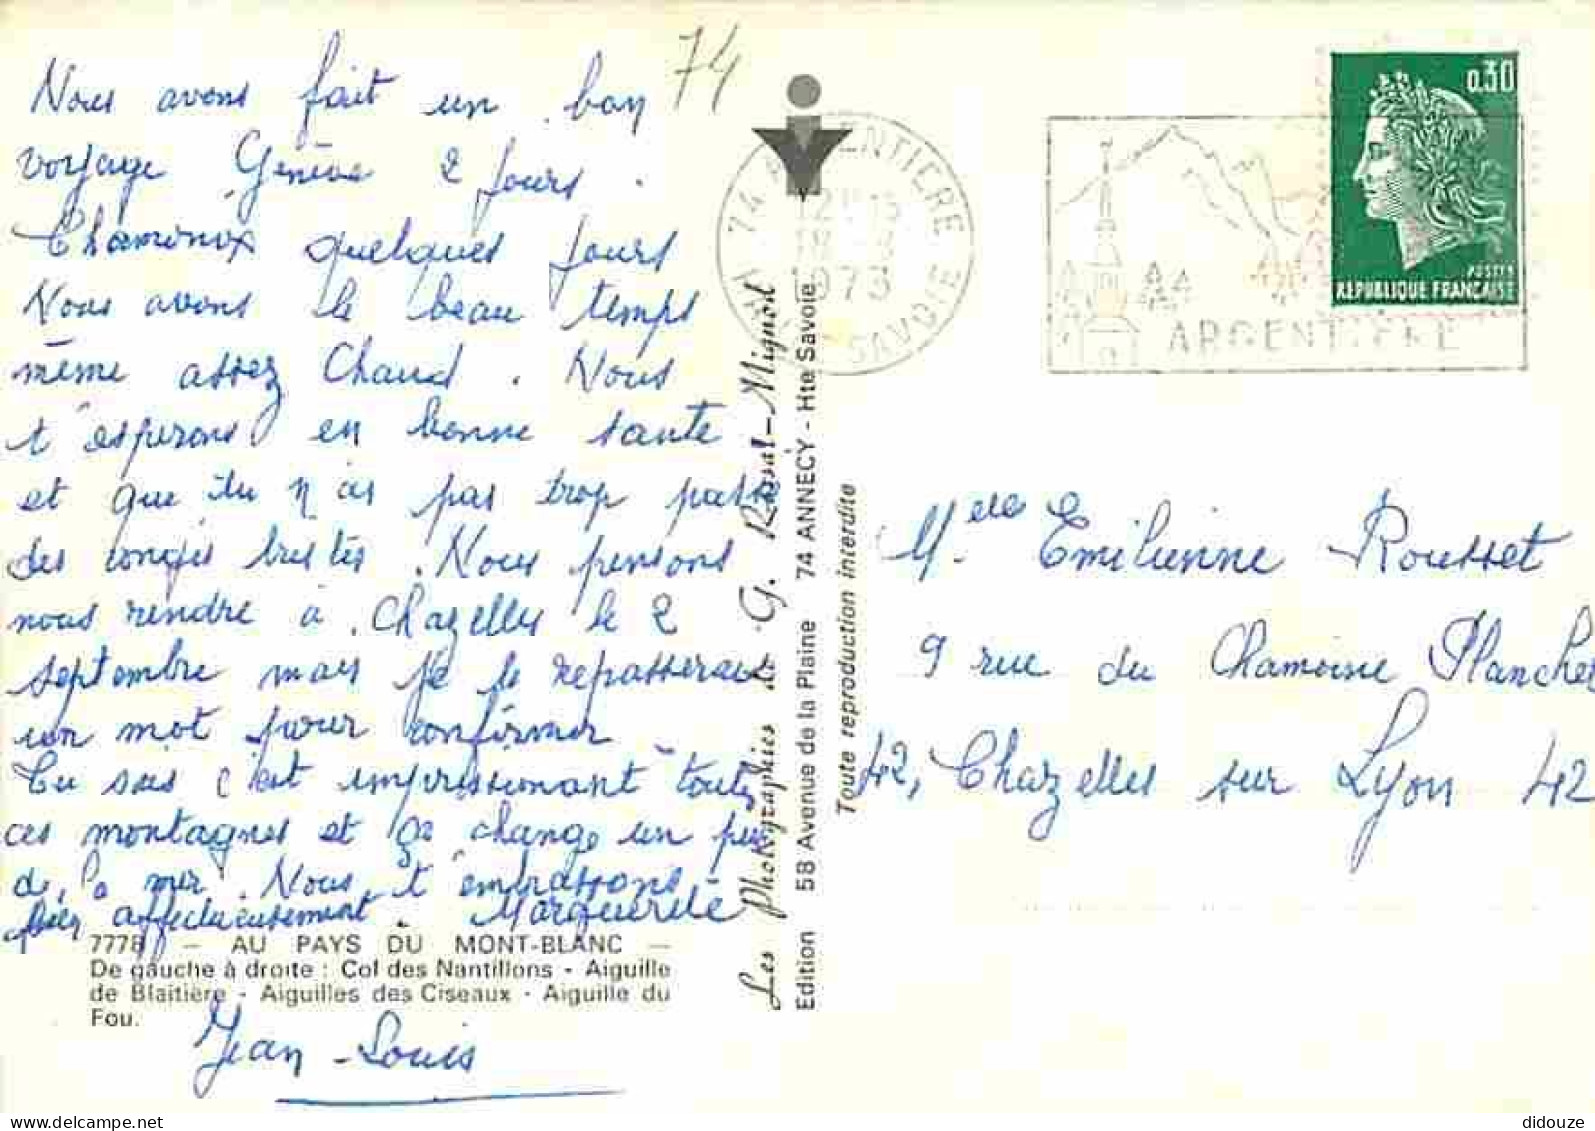 74
Nous avons fait un bon
voyage Genève 2 jours.
Chamonix quelques jours
Nous avons le beau temps
même assez Chaud. Nous
t'esperons en bonne sante
et que tu n'as pas trop passé
des congés tristes. Nous pensons
nous rendre à Chazelles le 2
septembre mais je te repasserais
un mot pour confirmer
Tu sais c'est impressionant toutes
ces montagnes et ça change un peu
de la mer. Nous t'embrassons
bien affectueusement. Marguerite
7778 — AU PAYS DU MONT-BLANC —
De gauche à droite : Col des Nantillons - Aiguille
de Blaitière - Aiguilles des Ciseaux - Aiguille du
Fou.
Jean-Louis
Les Photographies de G. Rosat-Mignod
Edition 58 Avenue de la Plaine 74 ANNECY - Hte Savoie
Toute reproduction interdite
74 ARGENTIERE
1973
SAVOIE
ARGENTIERE
0,30
POSTES
REPUBLIQUE FRANÇAISE
Melle Emilienne Rousset
9 rue du Chamoine Planchet
42, Chazelles sur Lyon 42
didouze